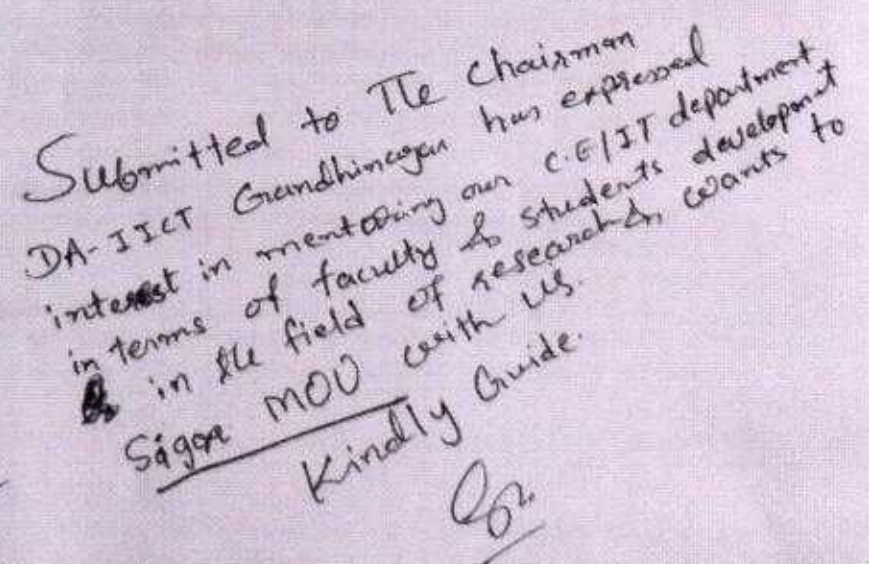 Submitted to The Chairman
DA-IICT Gandhinagar has expressed
interest in mentoring our C.E/IT department
in terms of faculty & students development
& in the field of research & wants to
Sign MOU with us.
Kindly Guide.